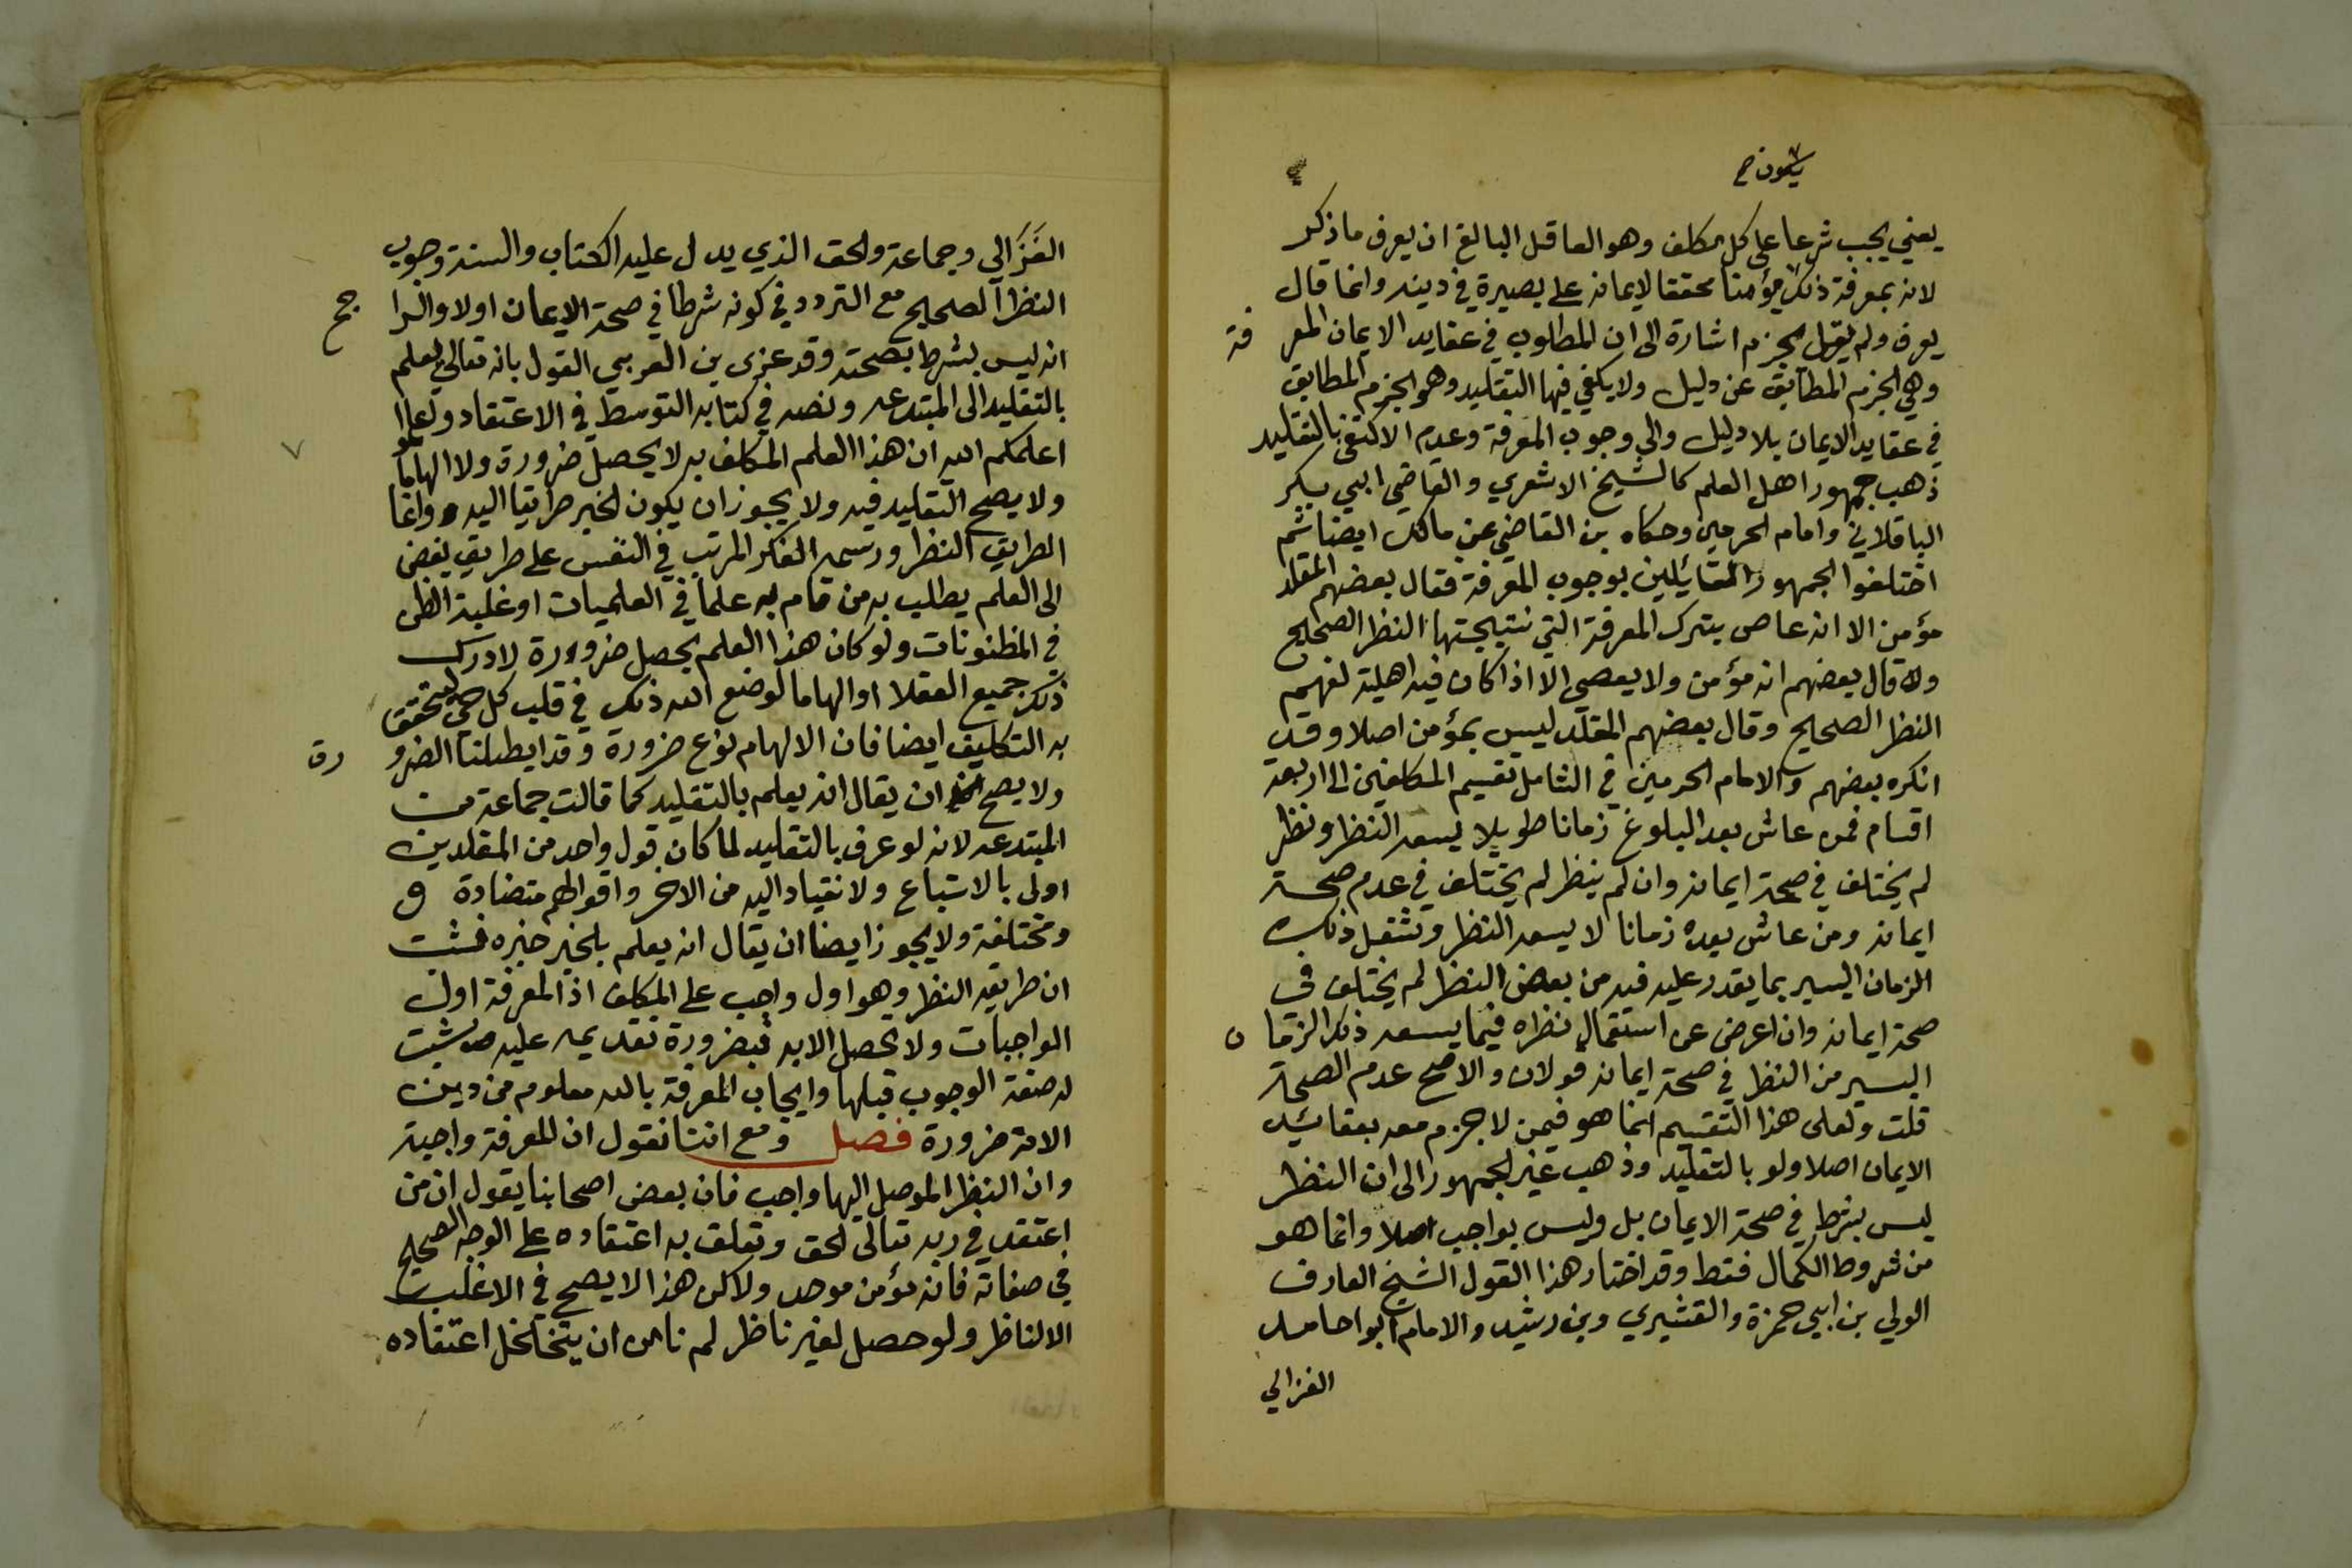 يكون صح
يعني يجب شرعا على كل مكلف وهو العاقل البالغ ان يعرف ما ذكر
لانه بمعرفة ذلك مؤمنا محققا لايمانه على بصيرة في دينه وانما قال
يعرف ولم يقل يجزم اشارة الى ان المطلوب في عقايد الايمان المعر فة
وهي الجزم المطابق عن دليل ولا يكفي فيها التقليد وهو الجزم المطابق
في عقايد الايمان بلا دليل والى وجوب المعرفة وعدم الاكتفى بالتقليد
ذهب جمهور اهل العلم كالشيخ الاشعري والقاضي ابي بكر
الباقلاني وامام الحرمين وحكاه بن القاضي عن مالك ايضا ثم
اختلفوا الجمهور القائيلين بوجوب المعرفة فقال بعضهم المقلد
مؤمن الا انه عاص بترك المعرفة التي نتيجتها النظر الصحيح
وقال بعضهم انه مؤمن ولا يعصي الا اذا كان فيه اهلية لفهم
النظر الصحيح وقال بعضهم المقلد ليس بمؤمن اصلا وقد
انكره بعضهم والامام الحرمين في الشامل تقسيم المكلفين الى اربعة
اقسام فمن عاش بعد البلوغ زمانا طويلا يسعه النظر ونظر
لم يختلف في صحة ايمانه وان لم ينظر لم يختلف في عدم صحة
ايمانه ومن عاش بعده زمانا لا يسعه النظر وشغل ذلك
الزمان اليسير بما يقدر عليه فيه من بعض النظر لم يختلف في
صحة ايمانه وان اعرض عن استعمال نظره فيما يسعه ذلك الزما ن
اليسير من النظر في صحة ايمانه قولان والاصح عدم الصحة
قلت ولعلى هذا التقسيم انما هو فيمن لا جزم معه بعقائيد
الايمان اصلا ولو بالتقليد وذهب غير الجمهور الى ان النظر
ليس بشرط في صحة الايمان بل وليس بواجب اصلا وانما هو
من شروط الكمال فقط وقد اختار هذا القول الشيخ العارف
الولي بن ابي حمزة والقشيري وبن رشد والامام ابوا حامد
الغزالي
الغَزَالي وجماعة ولحق الذي يدل عليه الكتاب والسنة وجوب
النظر الصحيح مع التردد في كونه شرطا في صحة الايمان اولا والرا جح
انه ليس بشرط بصحته وقد عزى بن العربي القول بانه تعالى يعلم
بالتقليد الى المبتدعه ونصه في كتابه التوسط في الاعتقاد ولعلموا
اعلمكم الله ان هذا العلم المكلف به لا يحصل ضرورة ولا الهاما
ولا يصح التقليد فيه ولا يجوز ان يكون الخبر طرايقا اليه وانما
الطريق النظر ورسمه الفكر المرتب في النفس على طريق يفضى
الى العلم يطلب به من قام به علما في العلميات او غلبة الظن
في المظنونات ولو كان هذا العلم يحصل ضرورة لادرك
ذلك جميع العقلا او الهاما لوضع الله ذلك في قلب كل حي ليتحقق
به التكليف ايضا فان الالهام نوع ضرورة وقد ابطلنا الضرو رة
ولا يصح ان يقال انه يعلم بالتقليد كما قالت جماعة من
المبتدعه لانه لو عرف بالتقليد لما كان قول واحد من المقلدين
اولى بالاتباع ولانقياد اليه من الاخر واقوالهم متضادة و
ومختلفة ولا يجوز ايضا ان يقال انه يعلم بلخبر خبره فثبت
ان طريقه النظر وهو اول واجب على المكلف اذ المعرفة اول
الواجبات ولا تحصل الا به فبضرورة تقديمه عليه ثبت
له صفة الوجوب قبلها وايجاب المعرفة بالله معلوم من دين
الامة ضرورة فصل ومع اننا نقول ان المعرفة واجبة
وان النظر الموصل اليها واجب فان بعض اصحابنا يقول ان من
اعتقد في ربه تعالى الحق وتعلق به اعتقاده على الوجه الصحيح
في صفاته فانه مؤمن موحد ولاكن هذا لا يصح في الاغلب
الا لناظر ولو حصل لغير ناظر لم نامن ان يتخلخل اعتقاده